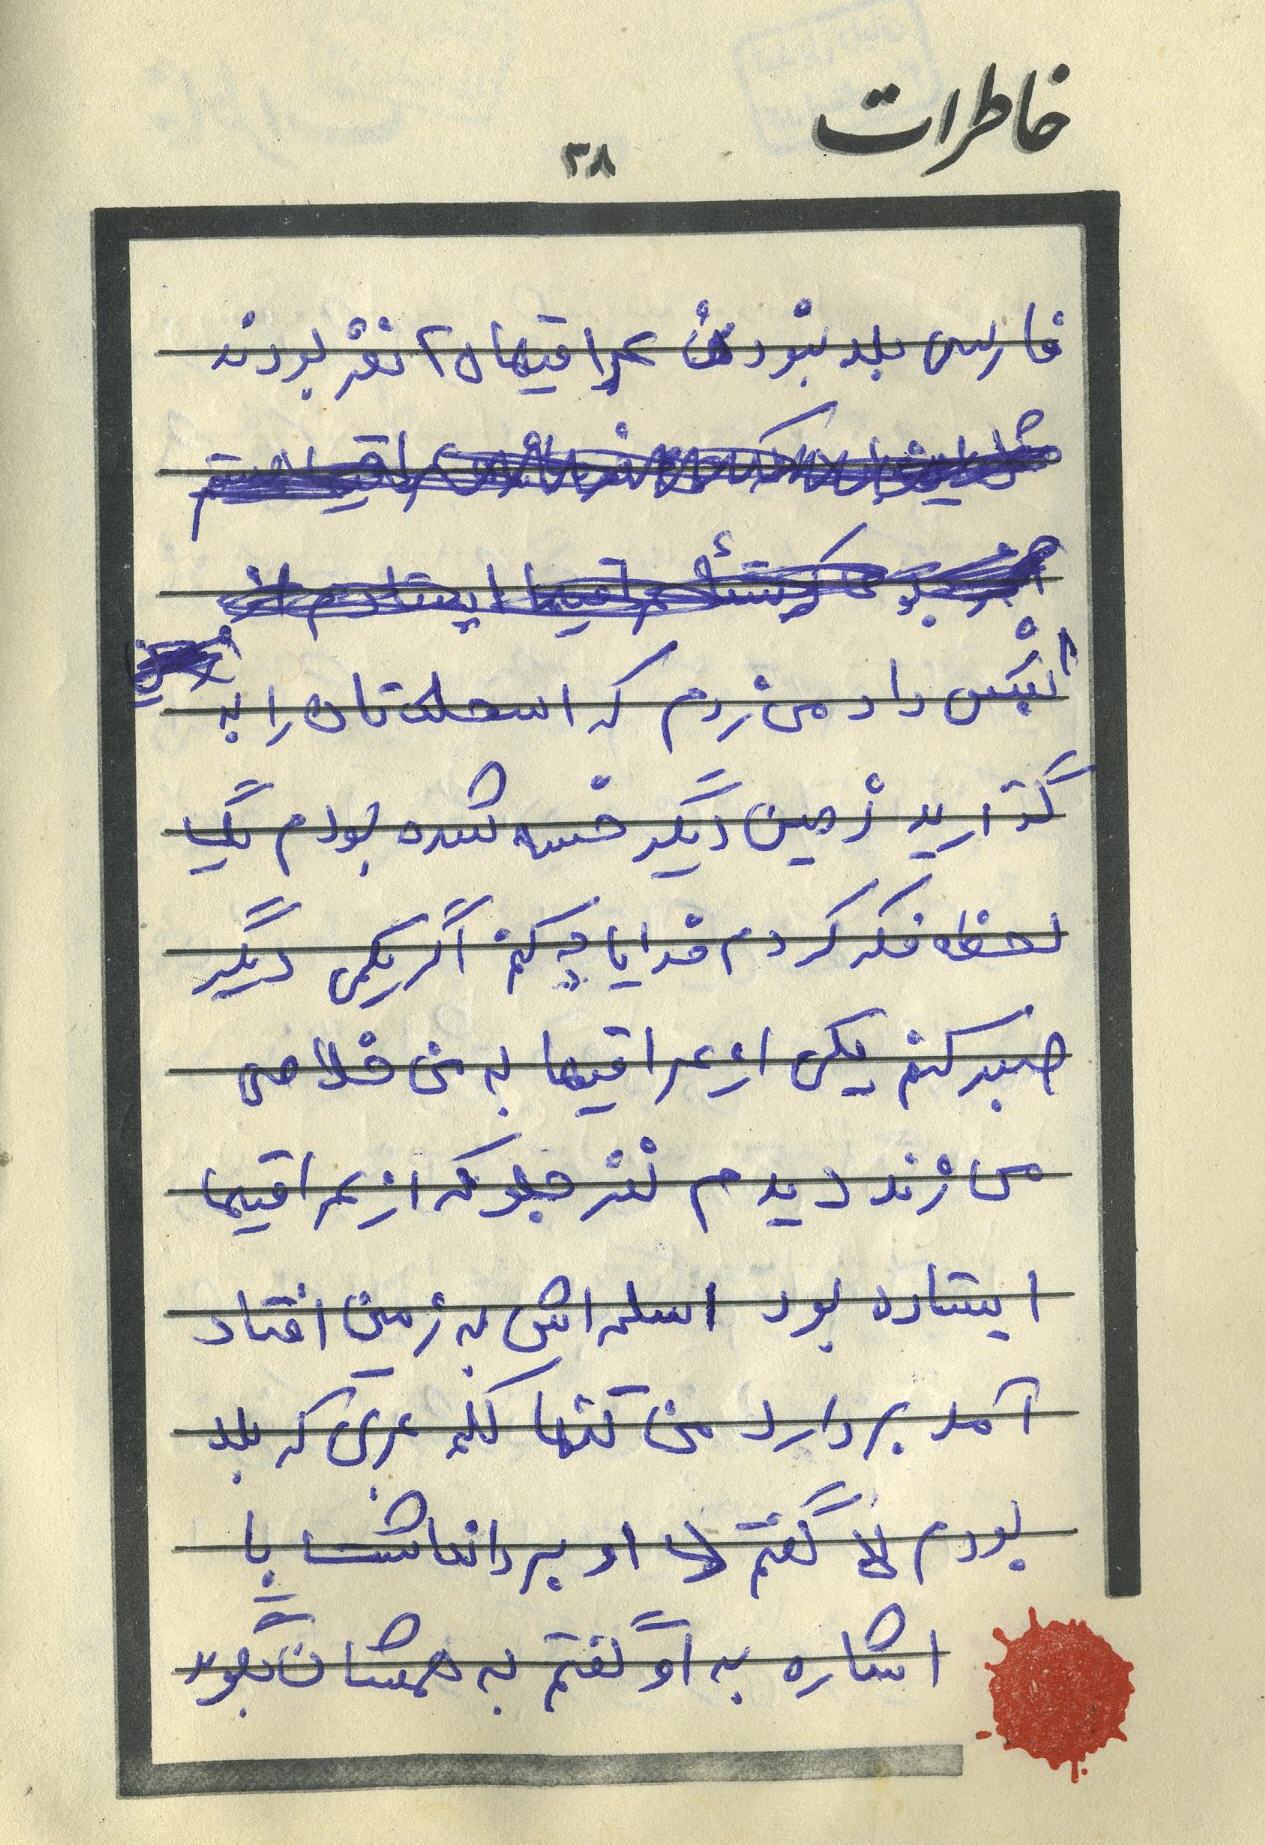 خاطرات
۳۸
فارسی بلد نبودن عراقیها ۲۰ نفر بودند
داد می زدم که اسحله تان را به
گذارید زمین دیگر خسه شده بودم یک
لحظه فکر کردم خدایا چه کنم اگر یکمی دیگر
صبر کنم یکی از عراقیها به من خلاصی
می زند دیدم نفر جلو که از عراقیها
ایستاده بود اسلحه اش به زمین افتاد
آمد بردارد من تنها کلمه عربی که بلد
بودم لا گفتم لا او بر دانداشت با
اشاره به او گفتم به همشان بگوید